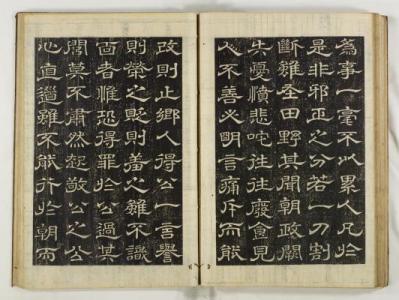 為事一毫不以累人凡於
是非邪正之分若一刀割
斷雖在田野其聞朝政闕
失憂憤悲咤往往廢食見
人不善必明言痛斥而能
改則止鄉人得公一言譽
則榮之貶則羞之雖不識
面者惟恐得罪於公過其
閭莫不肅然起敬公之公
心直道雖不能行於朝而